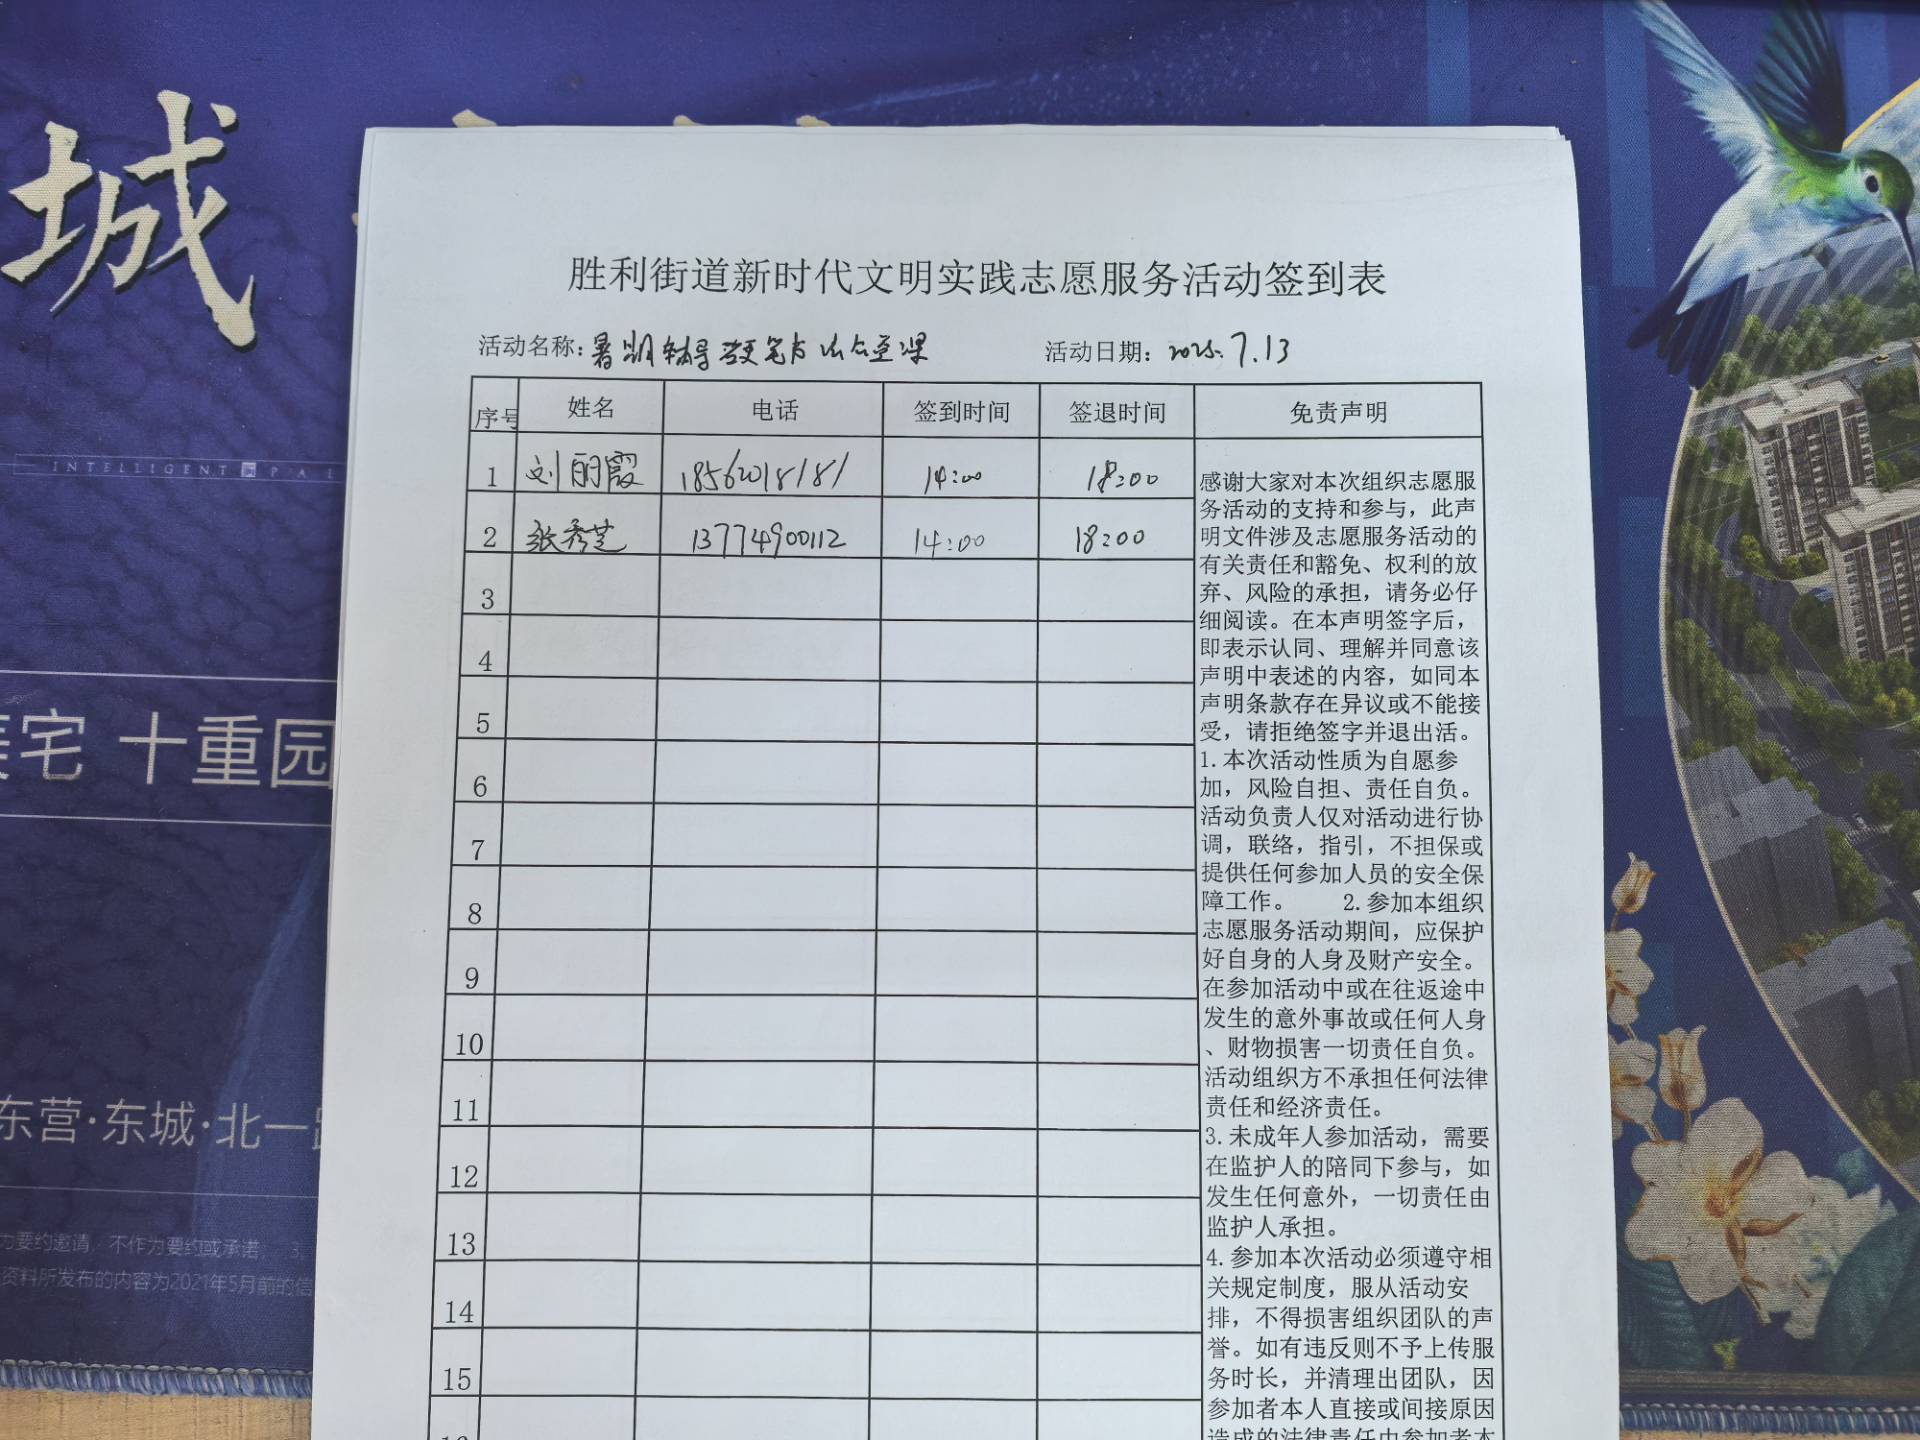 城
INTELLIGENT PAL
宅 十重园
东营·东城·北一路
为要约邀请，不作为要约或承诺； 3、
资料所发布的内容为2021年5月前的信
胜利街道新时代文明实践志愿服务活动签到表
活动名称：暑期辅导硬笔书法公益课 活动日期：2025.7.13
序号 姓名 电话 签到时间 签退时间 免责声明
1 刘丽霞 18562018181 14:00 18:00
2 张秀芝 13774900112 14:00 18:00
3
4
5
6
7
8
9
10
11
12
13
14
15
感谢大家对本次组织志愿服
务活动的支持和参与，此声
明文件涉及志愿服务活动的
有关责任和豁免、权利的放
弃、风险的承担，请务必仔
细阅读。在本声明签字后，
即表示认同、理解并同意该
声明中表述的内容，如同本
声明条款存在异议或不能接
受，请拒绝签字并退出活。
1.本次活动性质为自愿参
加，风险自担、责任自负。
活动负责人仅对活动进行协
调，联络，指引，不担保或
提供任何参加人员的安全保
障工作。 2.参加本组织
志愿服务活动期间，应保护
好自身的人身及财产安全。
在参加活动中或在往返途中
发生的意外事故或任何人身
、财物损害一切责任自负。
活动组织方不承担任何法律
责任和经济责任。
3.未成年人参加活动，需要
在监护人的陪同下参与，如
发生任何意外，一切责任由
监护人承担。
4.参加本次活动必须遵守相
关规定制度，服从活动安
排，不得损害组织团队的声
誉。如有违反则不予上传服
务时长，并清理出团队，因
参加者本人直接或间接原因
造成的法律责任由参加者本